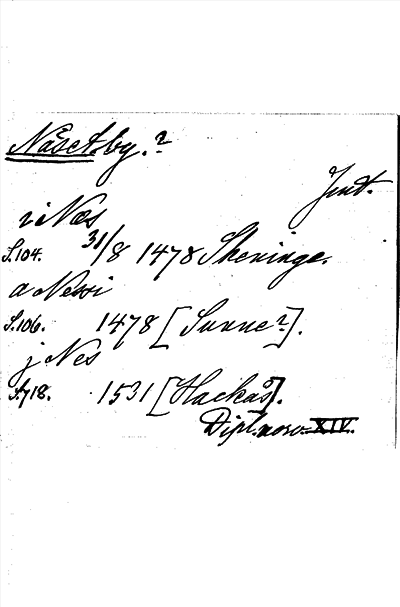 Näset.by.?
Jmt.
i Næs
S.104. 31/8 1478 Skeninge.
a Nessi
S.106. 1478 [Sunne?].
j Nes
S.718. 1531 [Hackås?].
Dipl. norv. XIV.